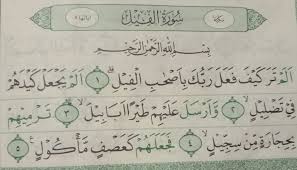 سُورَةُ الْفِيْلِ
بِسْمِ اللّٰهِ الرَّحْمٰنِ الرَّحِيْمِ
اَلَمْ تَرَ كَيْفَ فَعَلَ رَبُّكَ بِاَصْحٰبِ الْفِيْلِ ۝١ اَلَمْ يَجْعَلْ كَيْدَهُمْ
فِيْ تَضْلِيْلٍ ۝٢ وَّاَرْسَلَ عَلَيْهِمْ طَيْرًا اَبَابِيْلَ ۝٣ تَرْمِيْهِمْ
بِحِجَارَةٍ مِّنْ سِجِّيْلٍ ۝٤ فَجَعَلَهُمْ كَعَصْفٍ مَّأْكُوْلٍ ۝٥